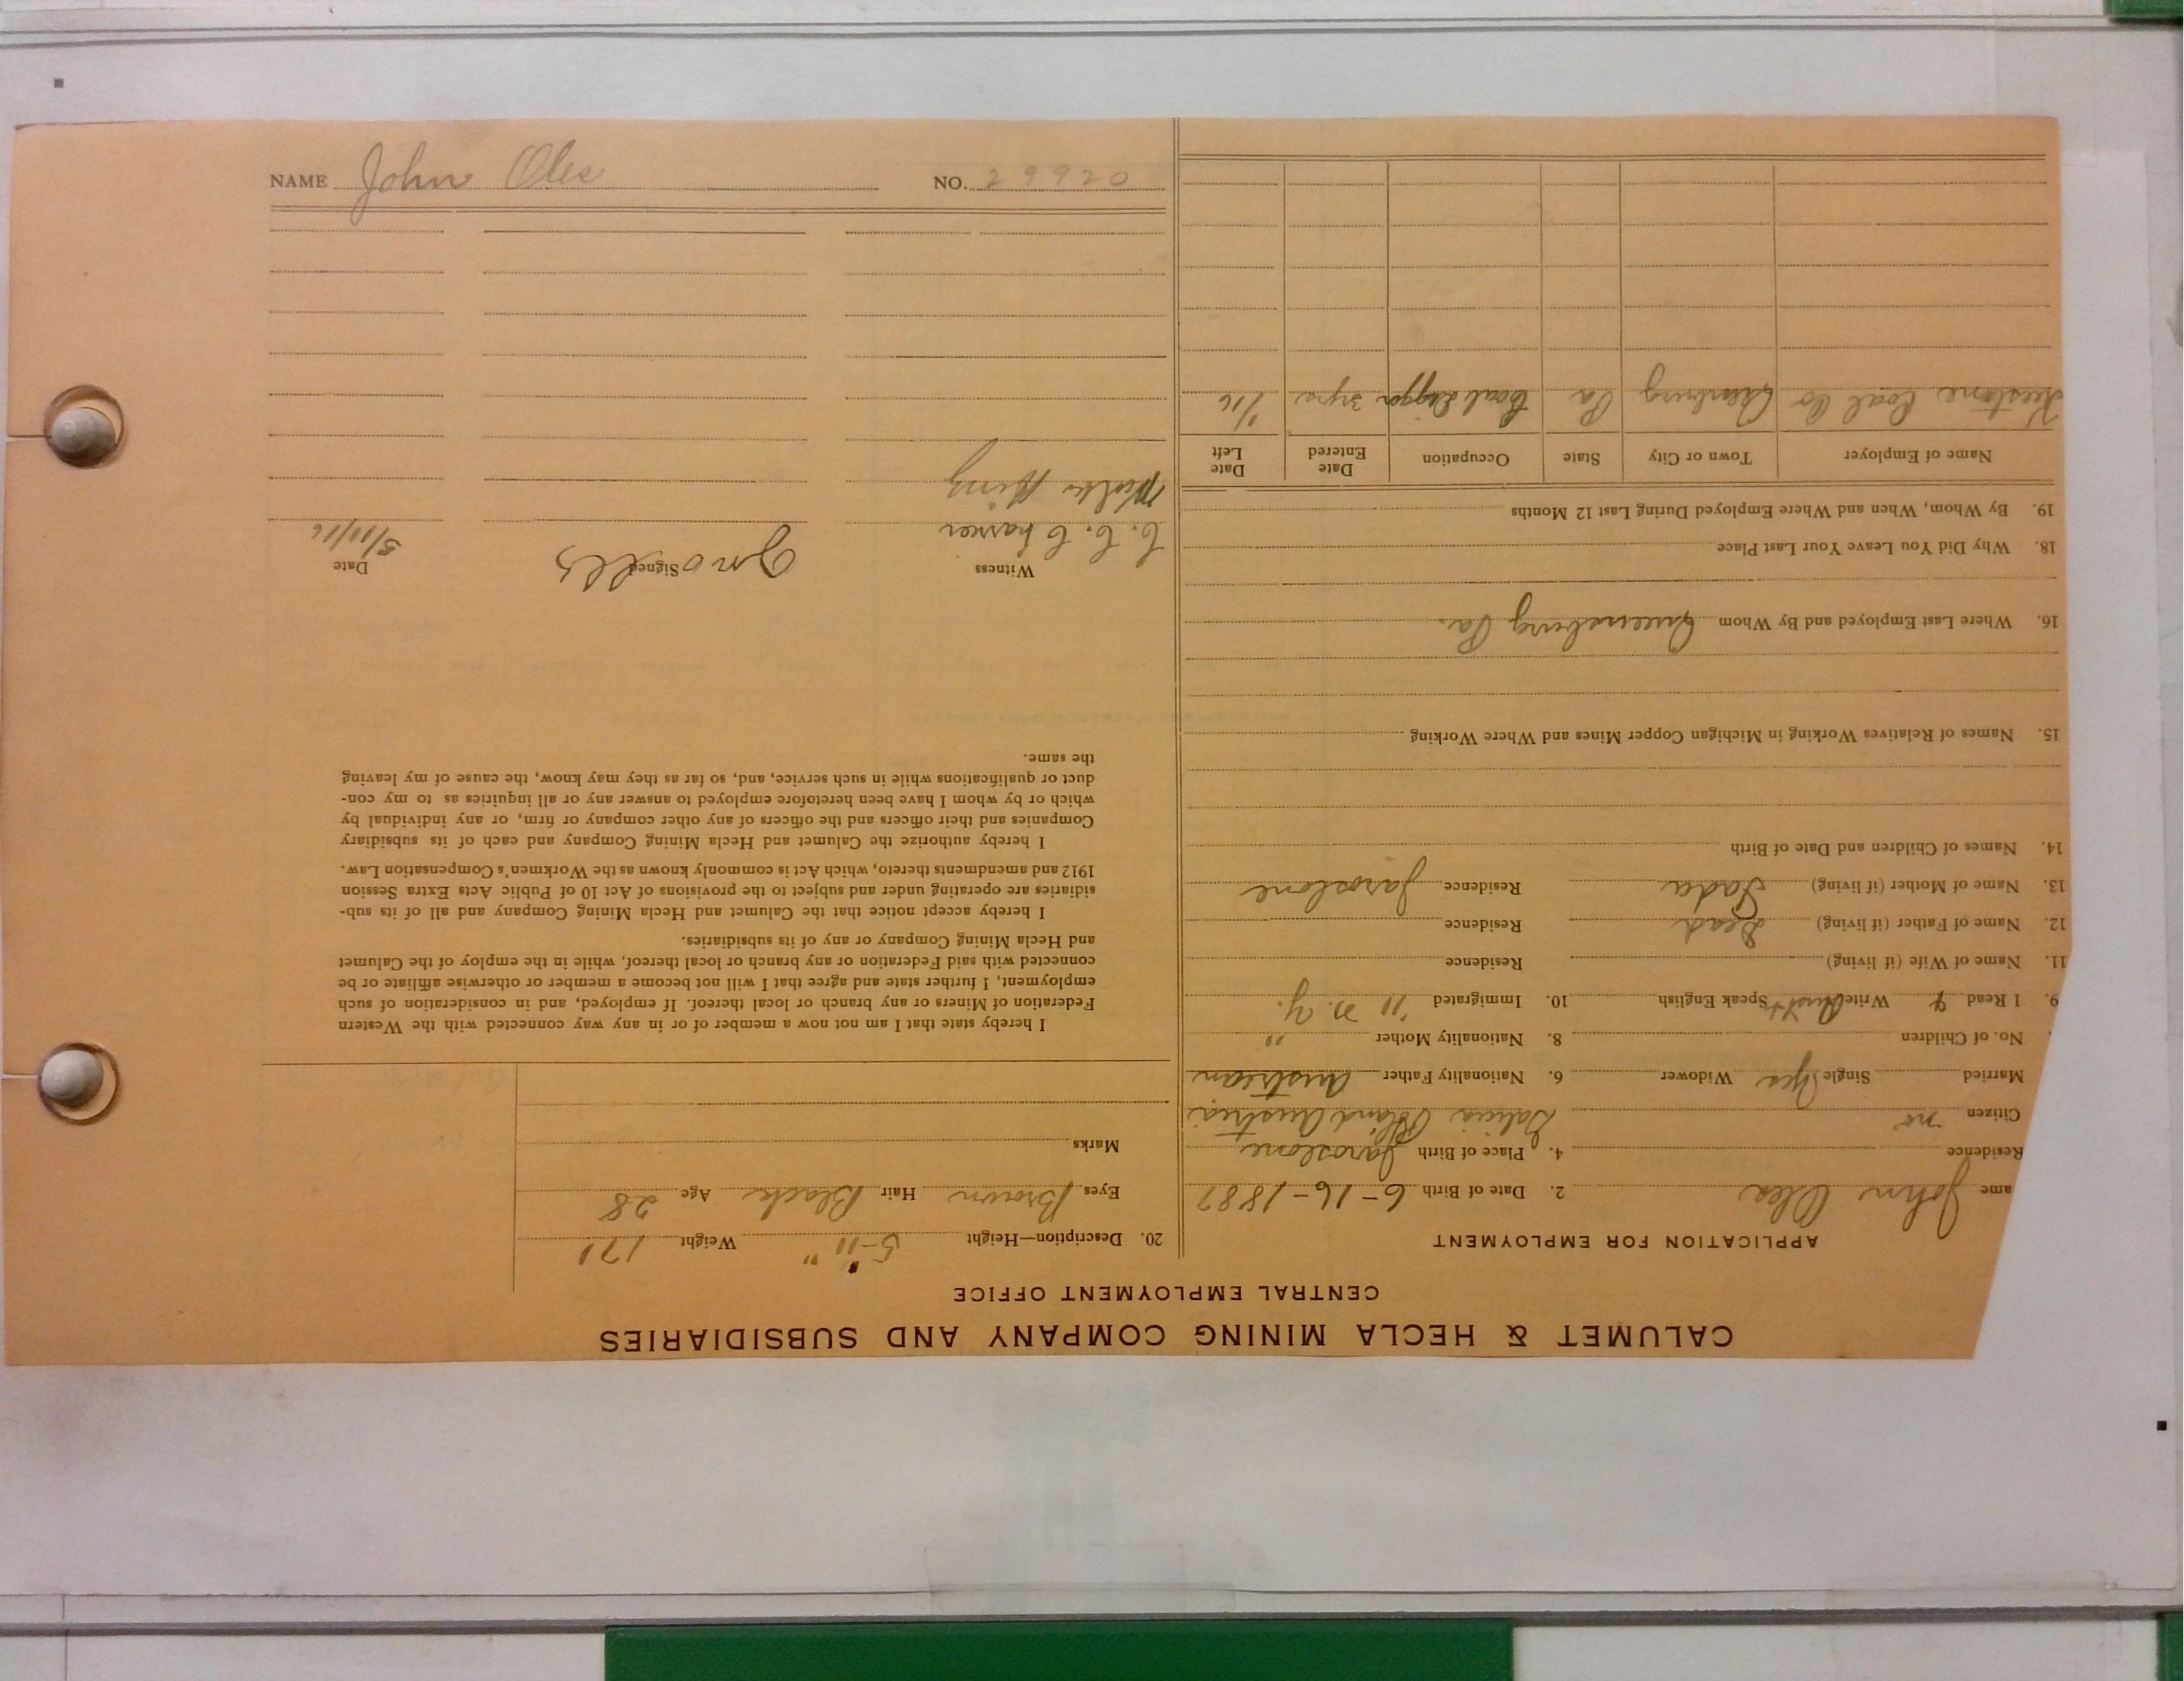 CALUMET & HECLA MINING COMPANY AND SUBSIDIARIES
CENTRAL EMPLOYMENT OFFICE
APPLICATION FOR EMPLOYMENT
ame John Oles 2. Date of Birth 6-16-1887
Residence 4. Place of Birth Jaroslone
Citizen no Galicia Poland Austria
Married Single Yes Widower 6. Nationality Father Austrian
No. of Children 8. Nationality Mother "
9. I Read & Write Speak English 10. Immigrated '11 N. Y.
11. Name of Wife (if living) Residence
12. Name of Father (if living) Dead Residence
13. Name of Mother (if living) Residence Jaroslone
14. Names of Children and Date of Birth
15. Names of Relatives Working in Michigan Copper Mines and Where Working
16. Where Last Employed and By Whom Greensburg Pa.
18. Why Did You Leave Your Last Place
19. By Whom, When and Where Employed During Last 12 Months
Name of Employer Town or City State Occupation Date Entered Date Left
Keestone Coal Co Pa Coal Digger 3 yrs. 1/16
20. Description—Height 5-11" Weight 171
Eyes Brown Hair Black Age 28
Marks
I hereby state that I am not now a member of or in any way connected with the Western
Federation of Miners or any branch or local thereof. If employed, and in consideration of such
employment, I further state and agree that I will not become a member or otherwise affiliate or be
connected with said Federation or any branch or local thereof, while in the employ of the Calumet
and Hecla Mining Company or any of its subsidiaries.
I hereby accept notice that the Calumet and Hecla Mining Company and all of its sub-
sidiaries are operating under and subject to the provisions of Act 10 of Public Acts Extra Session
1912 and amendments thereto, which Act is commonly known as the Workmen's Compensation Law.
I hereby authorize the Calumet and Hecla Mining Company and each of its subsidiary
Companies and their officers and the officers of any other company or firm, or any individual by
which or by whom I have been heretofore employed to answer any or all inquiries as to my con-
duct or qualifications while in such service, and, so far as they may know, the cause of my leaving
the same.
Witness Signed Date
C. C. Jno 5/11/16
Walter King
NAME John Oles NO. 29920